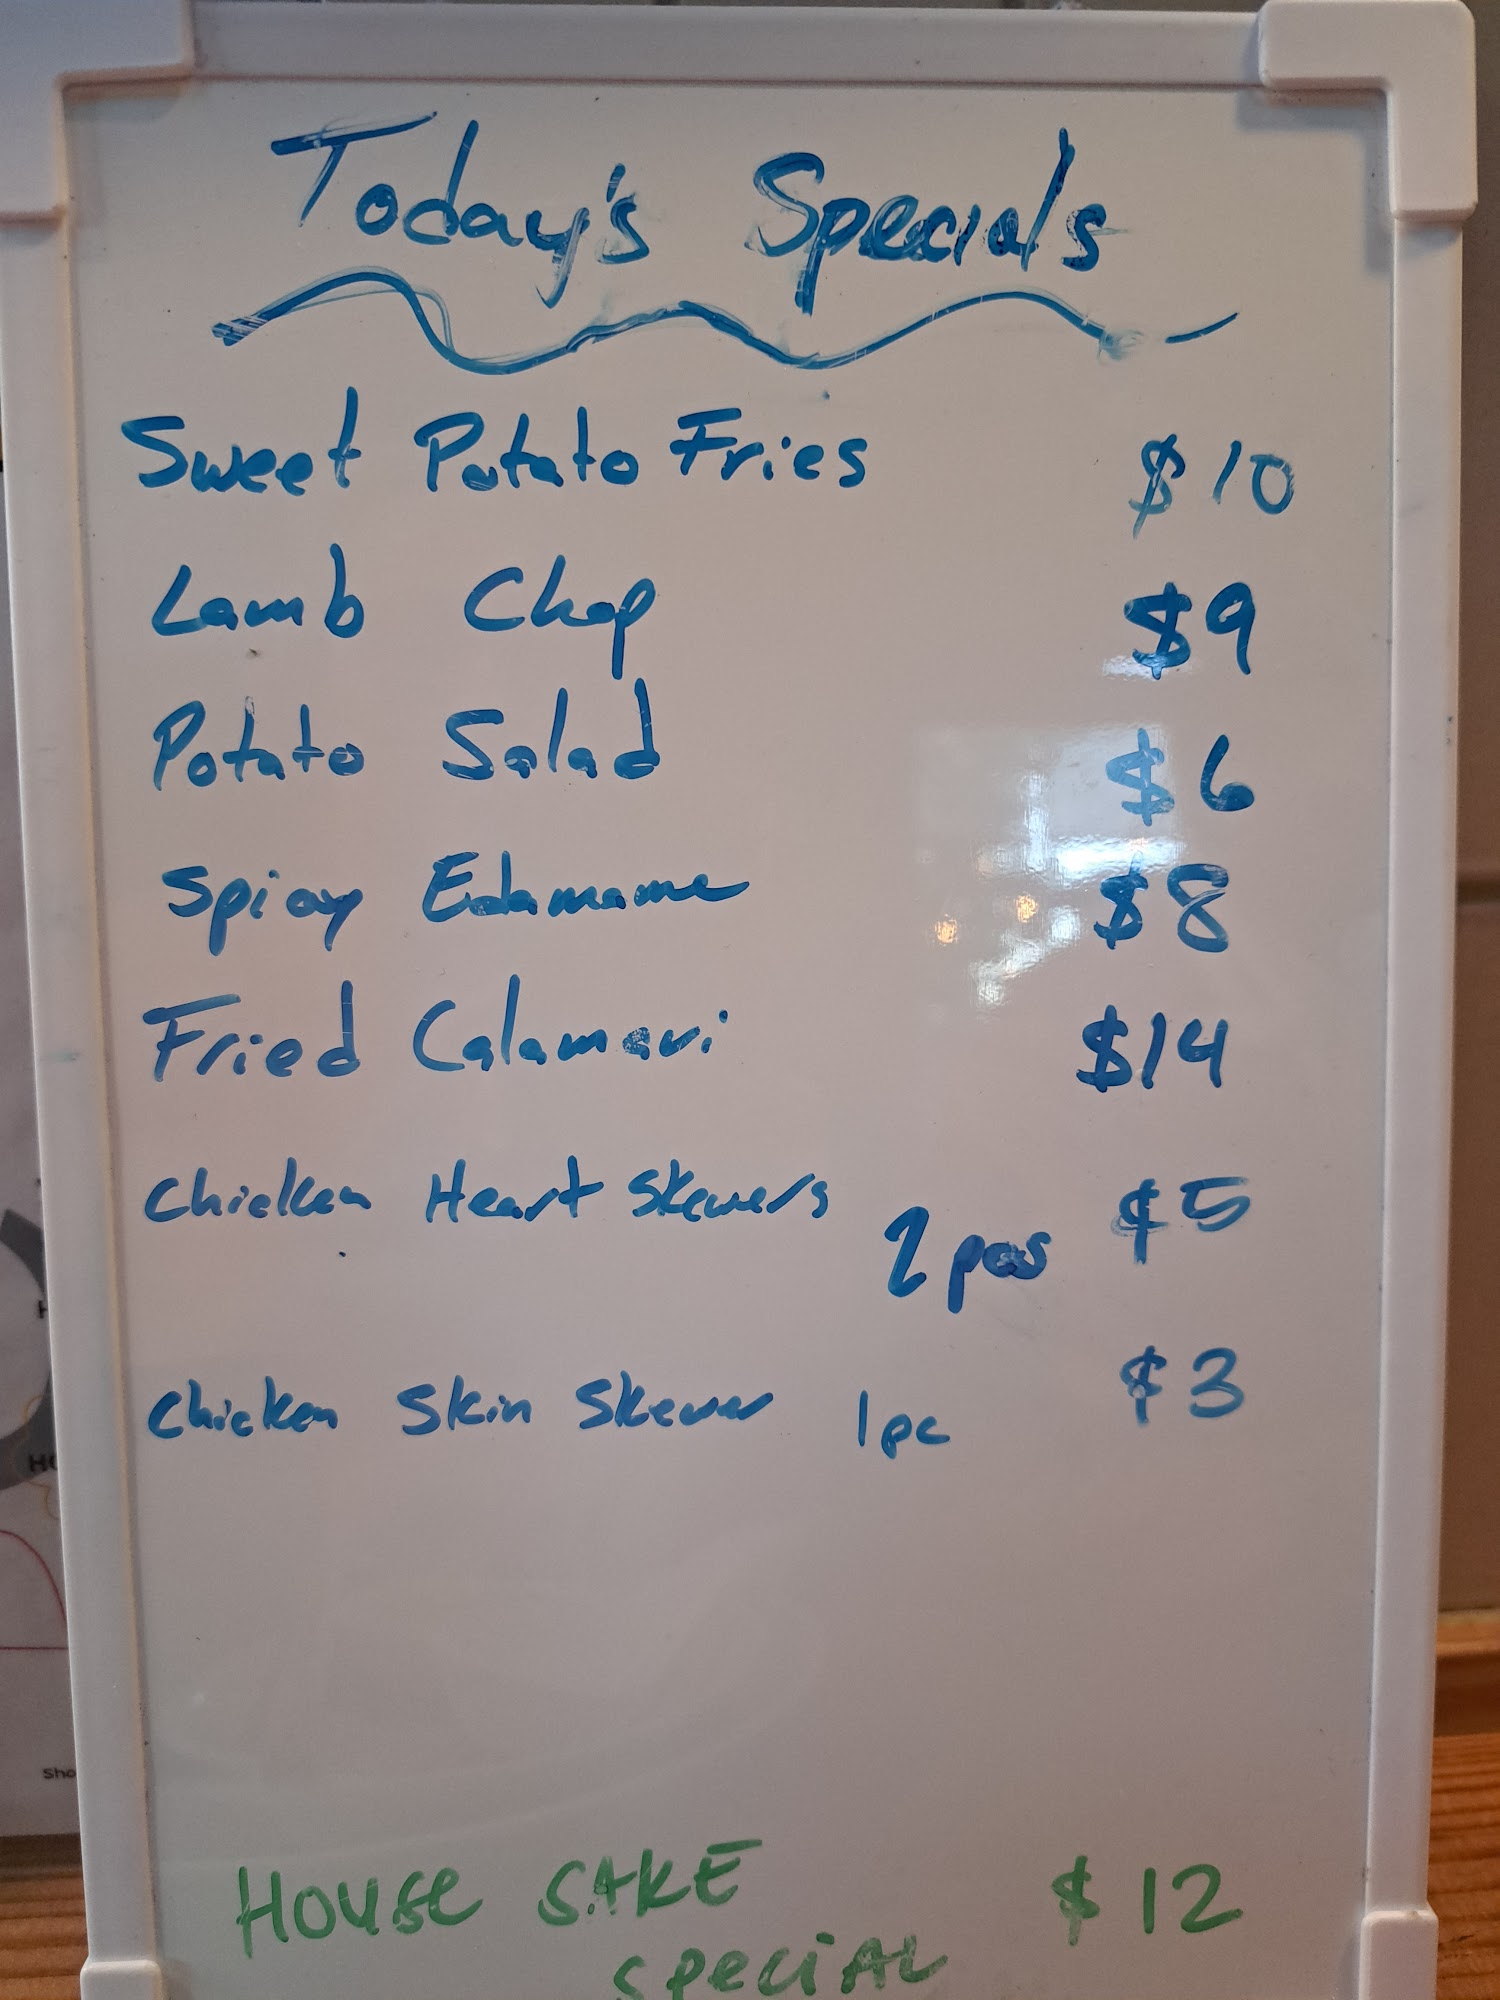 Today's Specials
Sweet Potato Fries $10
Lamb Chop $9
Potato Salad $6
Spicy Edamame $8
Fried Calamari $14
Chicken Heart Skewers 2 pcs $5
Chicken Skin Skewer 1 pc $3
HOUSE SAKE $12
SPECIAL
Sho